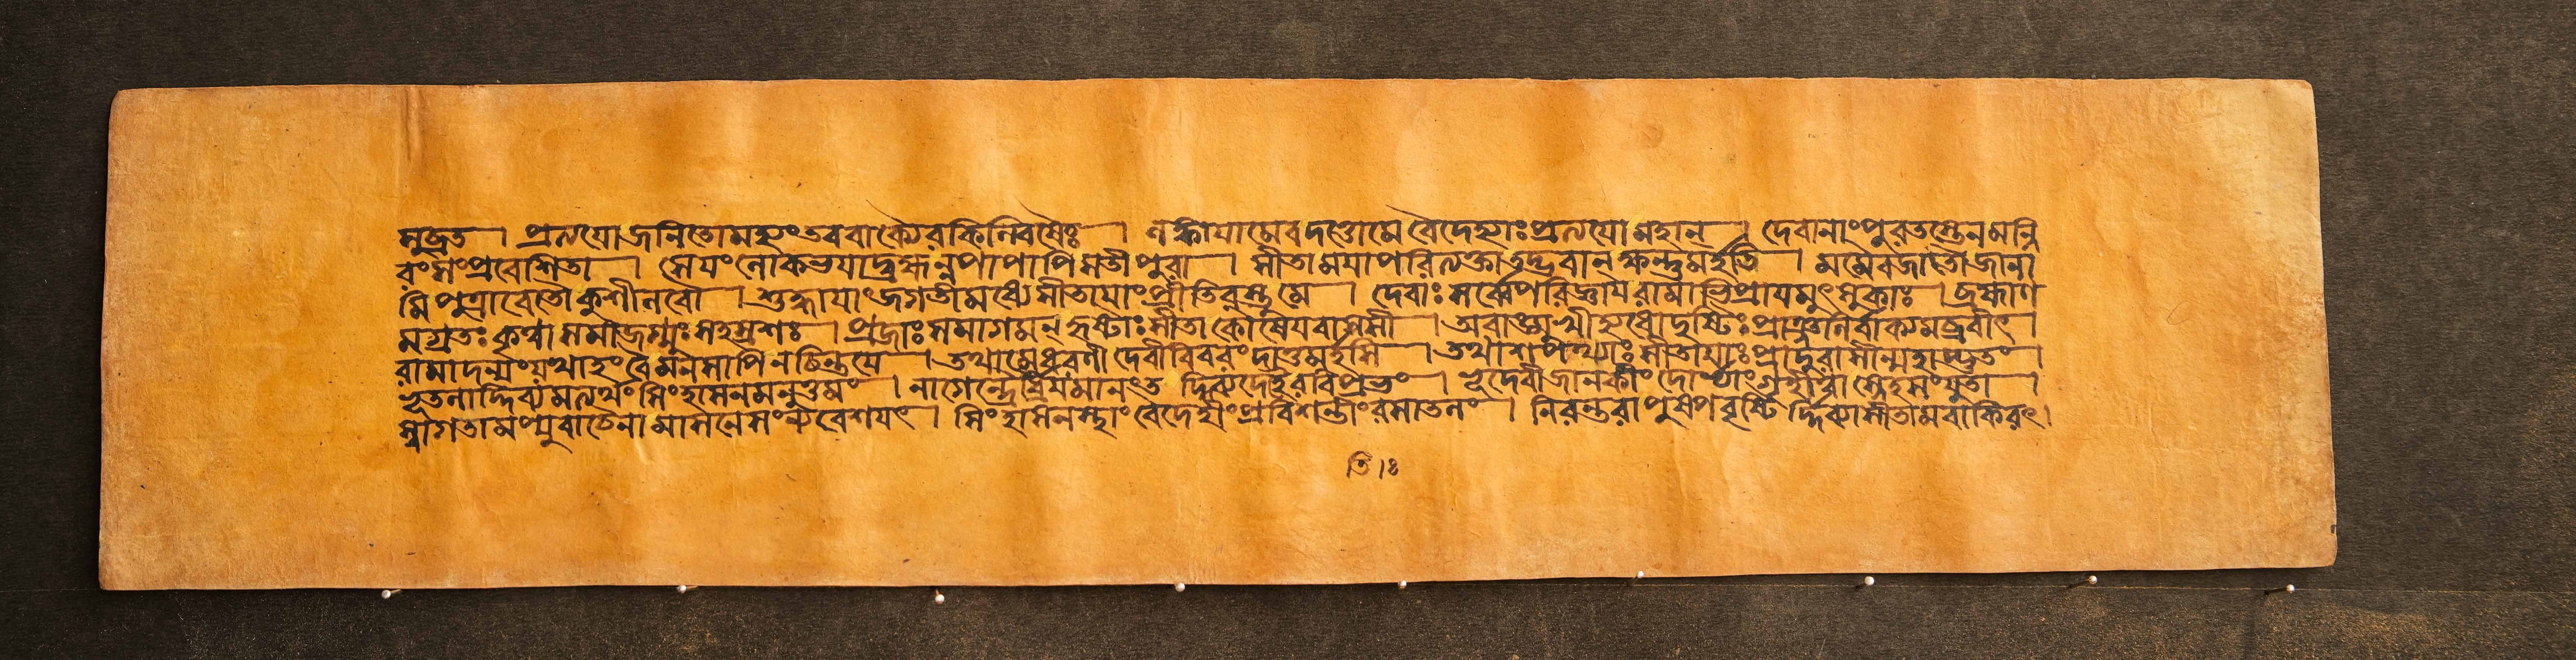 মুব্রত । প্রত্যয়োজনিতোমহ্যংতববাক্যৈরকিল্বিষৈঃ । লঙ্কায়ামেবদত্তোমেবৈদেহ্যাঃপ্রত্যয়োমহান্ । দেবানাংপুরতস্তেনমন্দি
রংসংপ্রবেশিতা । সেয়ংলোকভয়াদ্ব্রহ্মন্নপাপাপিসতীপুরা । সীতাময়াপরিত্যক্তাতদ্ভবান্ক্ষন্তুমর্হতি । মমৈবজাতৌজানা
মিপুত্রাবেতৌকুশীলবৌ । শুদ্ধায়াংজগতীমধ্যেসীতায়াংপ্রীতিরস্তুমে । দেবাঃসর্ব্বেপরিজ্ঞায়রামাভিপ্রায়মুৎসুকাঃ । ব্রহ্মাণ
মগ্রতঃকৃত্বাসমাজগ্মুঃসহস্রশঃ । প্রজাঃসমাগমন্হৃষ্টাঃসীতাকৌষেয়বাসিনী । অবাঙ্মুখীহ্যধোদৃষ্টিঃপ্রাঞ্জলির্বাক্যমব্রবীৎ ।
রামাদন্যংযথাহংবৈমনসাপিনচিন্তয়ে । তথামেধরণীদেবীবিবরংদাতুমর্হসি । তথাশপন্ত্যাঃসীতায়াঃপ্রাদুরাসীন্মহাদ্ভুতং ।
ভূতলাদ্দিব্যমত্যর্থংসিংহাসনমনুত্তমং । নাগেন্দ্রৈর্ধ্রিয়মানংত দ্দিব্যদেহৈরবিপ্রভং । ভূদেবীজানকীংদোর্ভ্যাংগৃহীত্বাস্নেহসংযুতা ।
স্বাগতামভ্যুবাচৈনামাসনেসংন্যবেশয়ৎ । সিংহাসনস্থাংবৈদেহীংপ্রবিশন্তীংরসাতলং । নিরন্তরাপুষ্পবৃষ্টি র্দ্দিব্যাসীতামবাকিরৎ ।
তি ।ঃ